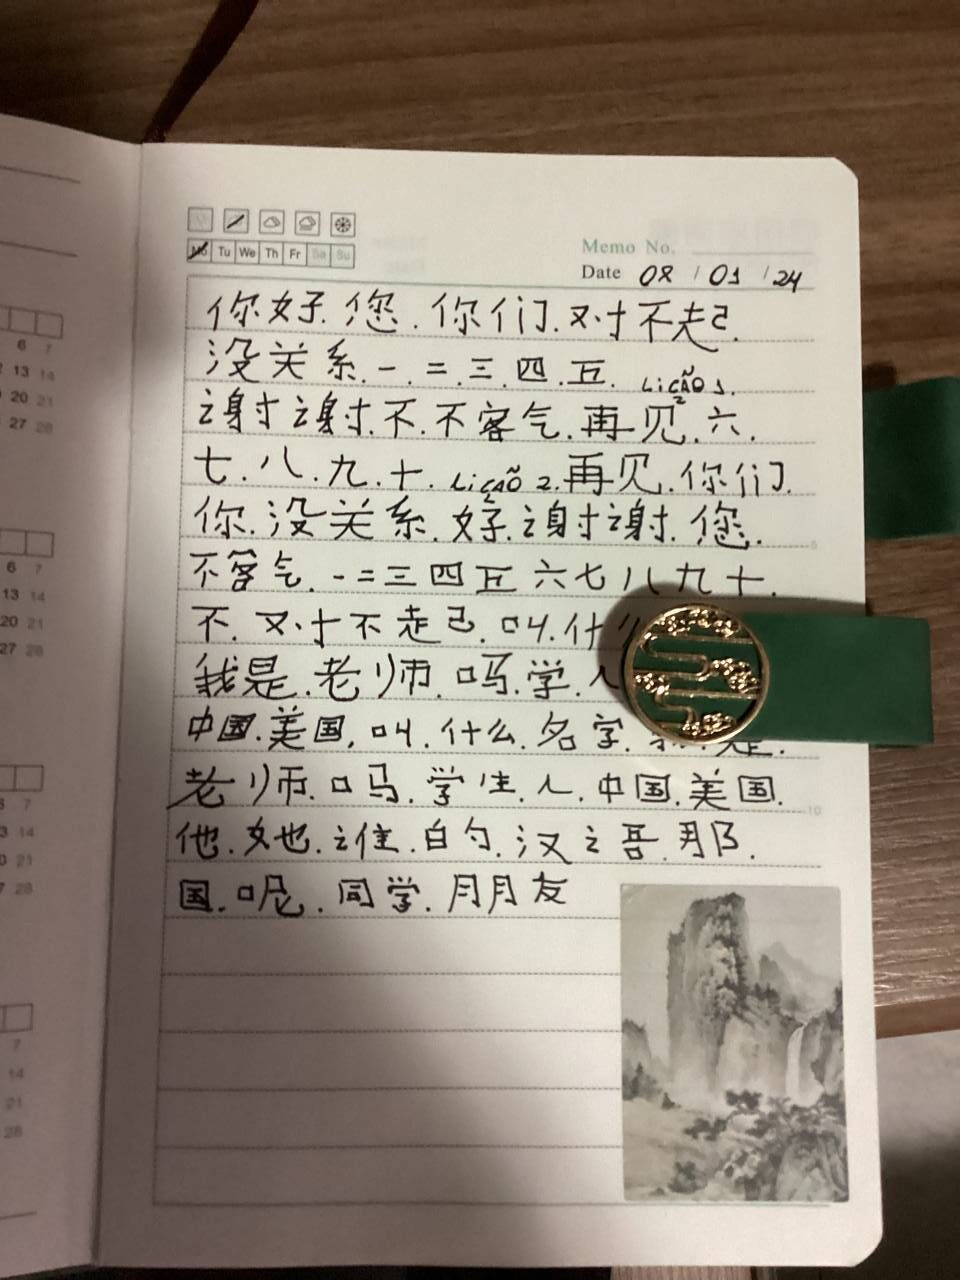 Mo Tu We Th Fr Sa Su
Memo No.
Date 08/01/24
你好.您.你们.对不起.
没关系.一.二.三.四.五. Lição 1.
谢谢.不.不客气.再见.六.
七.八.九.十. Lição 2. 再见.你们.
你.没关系.好.谢谢.您.
不客气.一二三四五六七八九十.
不.对不起.叫.什
我是.老师.吗.学.人
中国.美国,叫.什么.名字. 是.
老师.吗.学生.人.中国.美国.
他.她.谁.的.汉语.那.
国.呢.同学.朋友
5
10
6 7
13 14
20 21
27 28
6 7
13 14
20 21
27 28
7
14
21
28
7
14
21
28